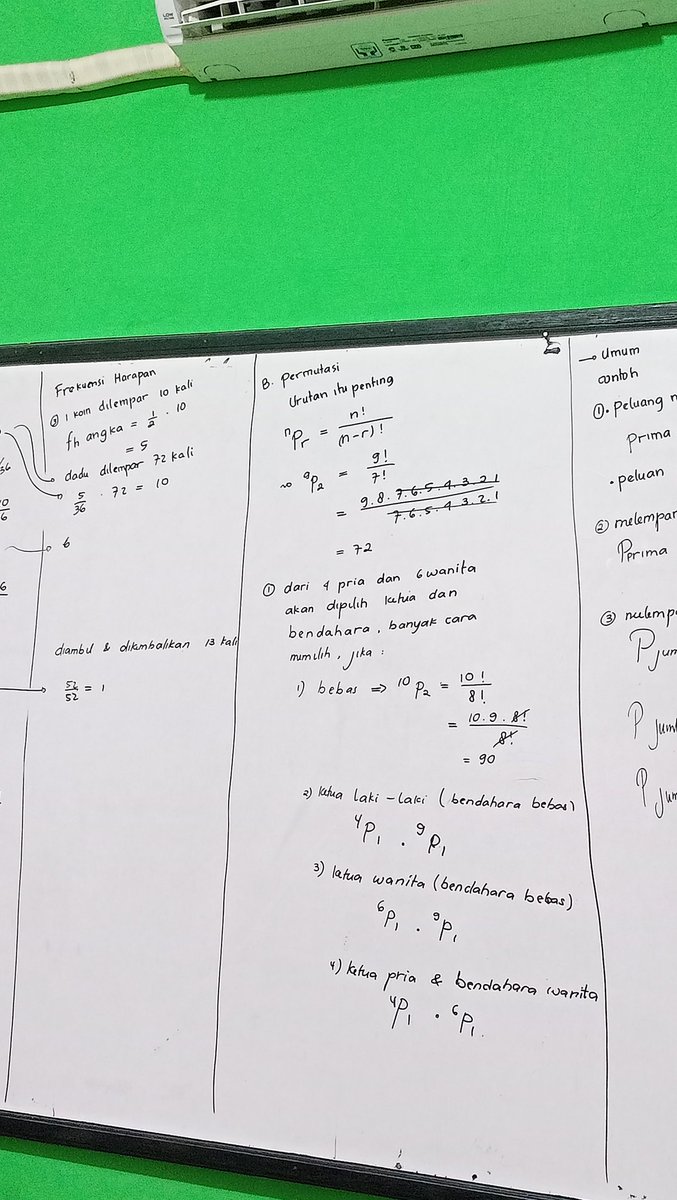 LOW
36
10
6
6
Frekuensi Harapan
③ 1 koin dilempar 10 kali
fh angka = 1/2 . 10
= 5
dadu dilempar 72 kali
5/36 . 72 = 10
6
diambil & dikembalikan 13 kali
52/52 = 1
B. Permutasi
Urutan itu penting
ⁿPᵣ = n!/(n-r)!
⁹P₂ = 9!/7!
= 9.8.7.6.5.4.3.2.1/7.6.5.4.3.2.1
= 72
① dari 4 pria dan 6 wanita
akan dipilih ketua dan
bendahara, banyak cara
memilih, jika :
1) bebas => ¹⁰P₂ = 10!/8!
= 10.9.8!/8!
= 90
2) ketua laki-laki (bendahara bebas)
⁴P₁ . ⁹P₁
3) ketua wanita (bendahara bebas)
⁶P₁ . ⁹P₁
4) ketua pria & bendahara wanita
⁴P₁ . ⁶P₁
→ Umum
contoh
①. Peluang
Prima
. peluan
② melempar
Pprima
③ melemp
P jum
P jum
P jum